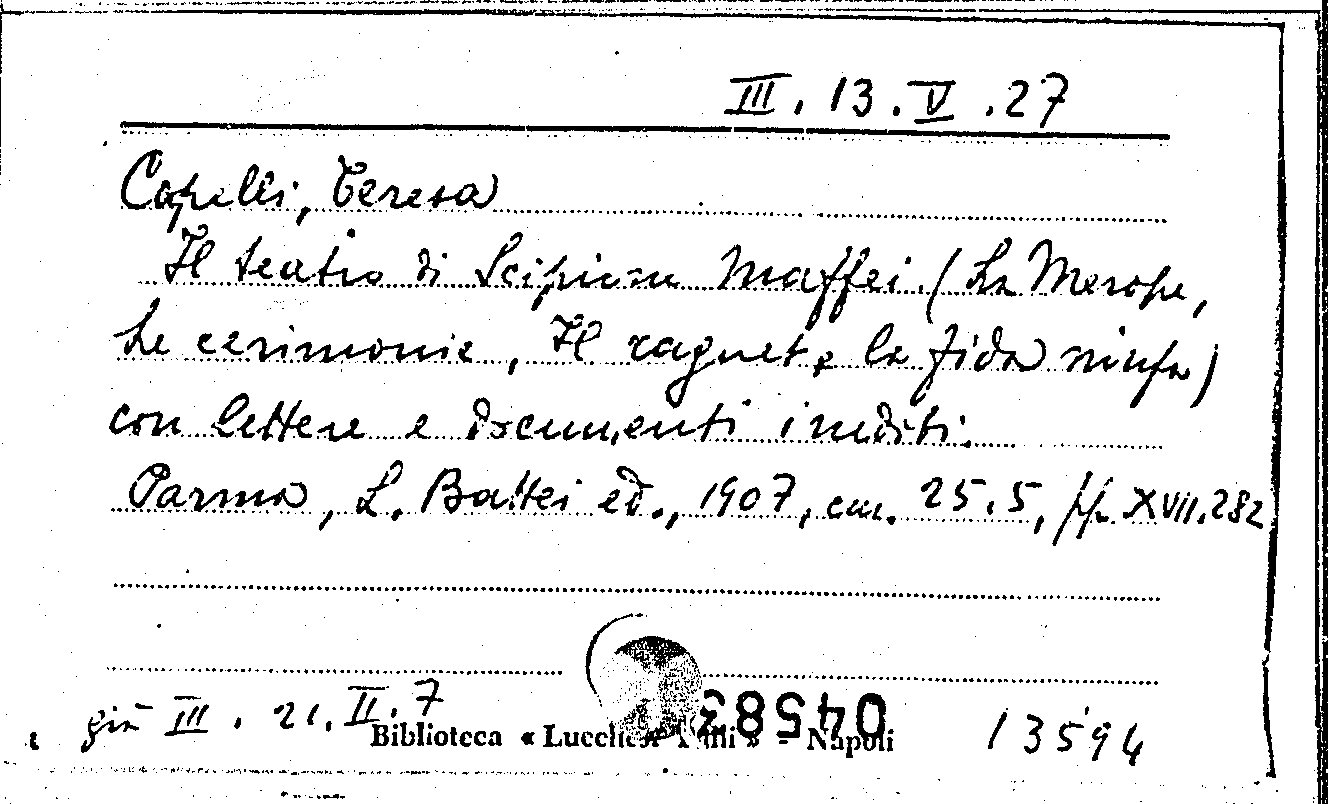 III. 13. V. 27
Capelli, Teresa
Il teatro di Scipione Maffei (La Merope,
Le cerimonie, Il raguet, la fida ninfa)
con lettere e documenti inediti.
Parma, L. Battei ed., 1907, cm. 25.5, pp. XVII.282
già III. 21. II. 7
Biblioteca « Lucchesi Palli » - Napoli
04583
13594